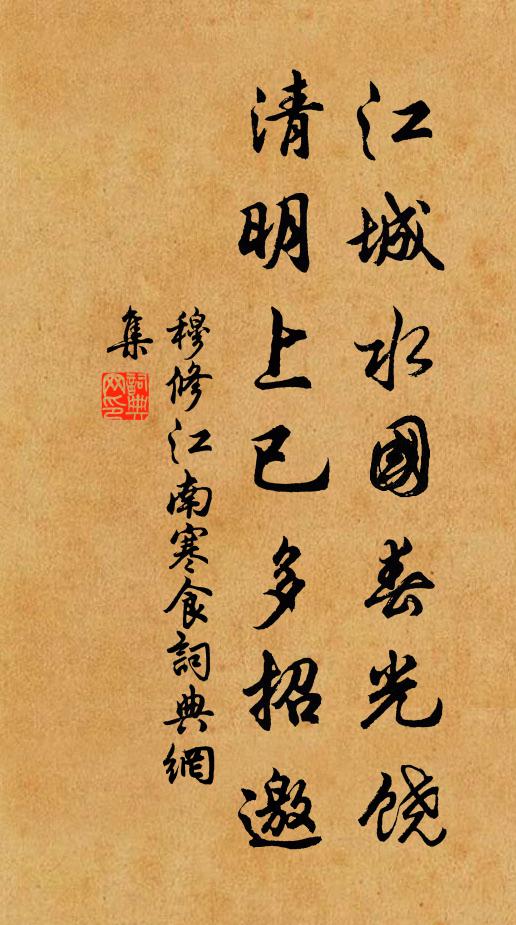 江城水國春光饶
清明上巳多招邀
穆修江南寒食詞典網
集
詞典網印